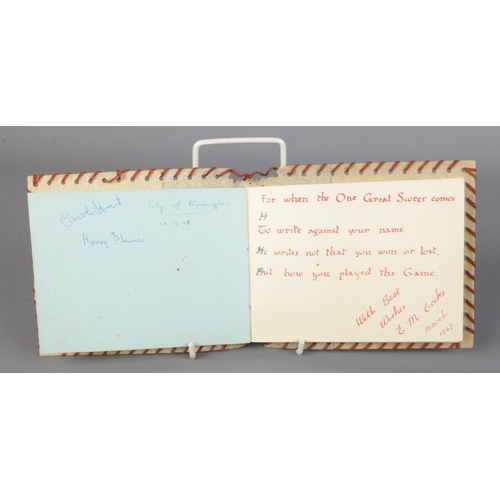 Carol
City of
Harry
For when the One Great Scorer comes
H
To write against your name,
He writes, not that you won or lost,
But how you played the Game.
With Best
Wishes
E. M. Cooke
March
1947.